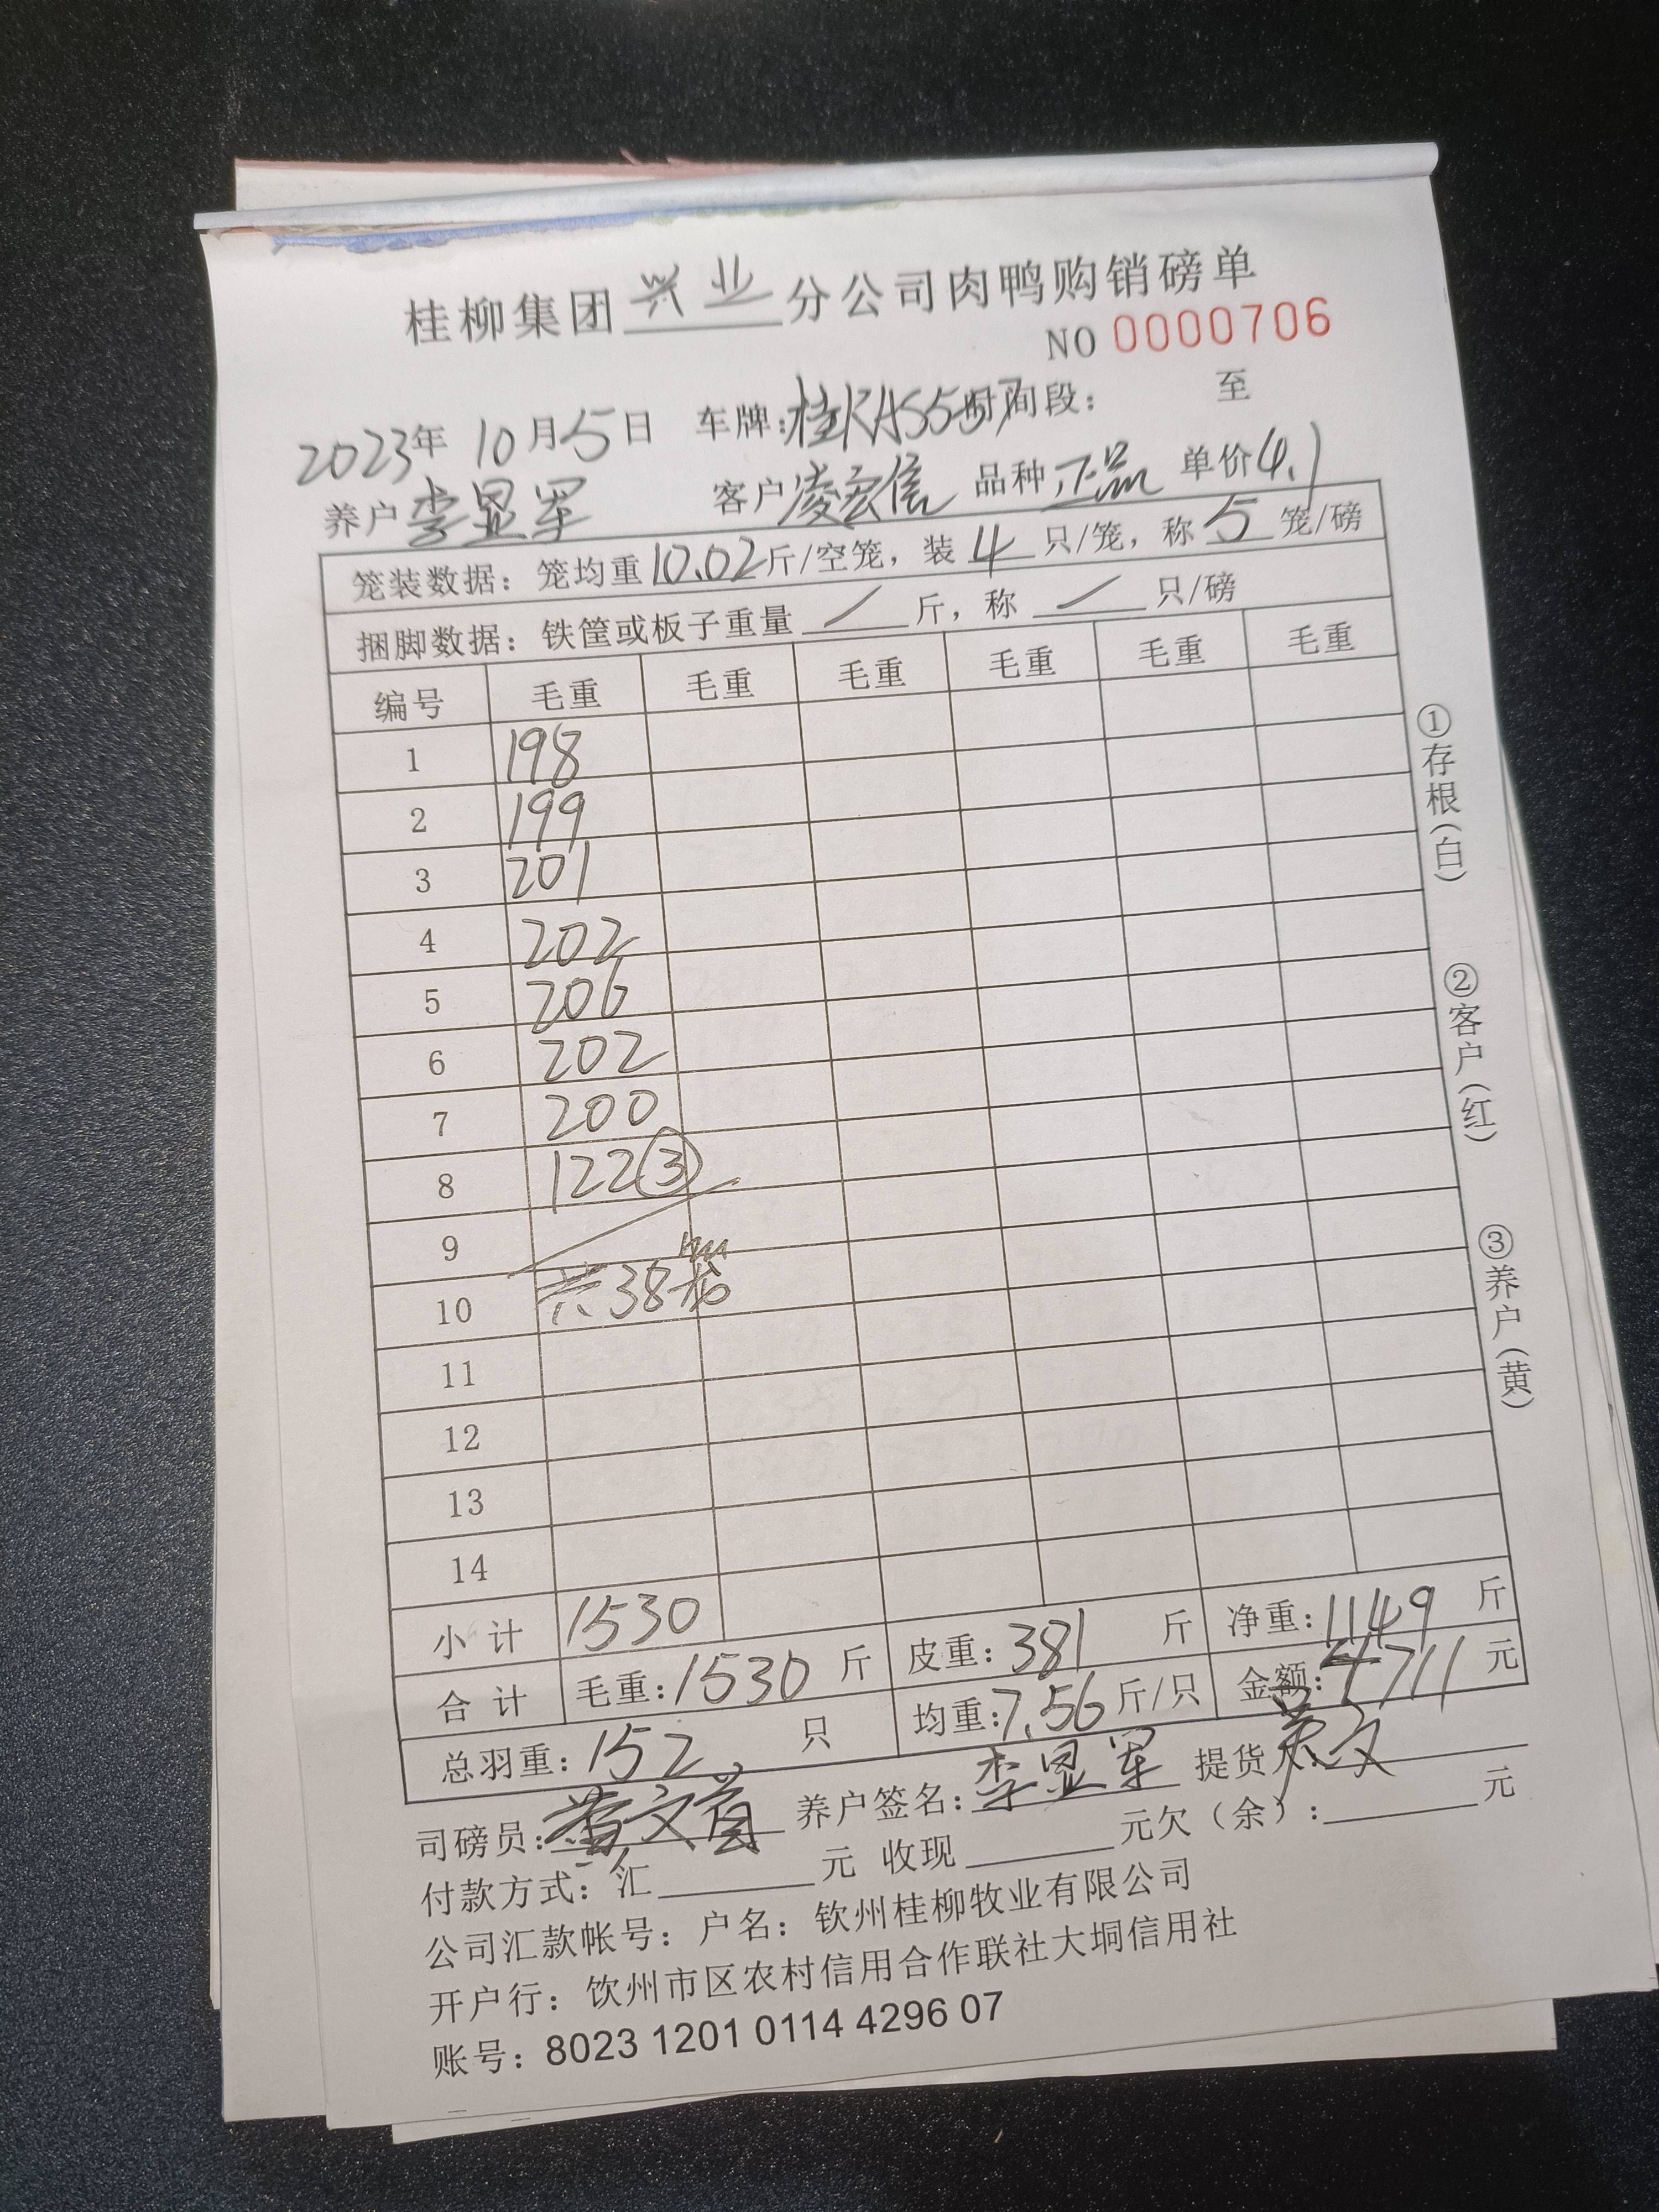 桂柳集团兴业分公司肉鸭购销磅单
NO 0000706
2023年10月5日 车牌:桂KA5557时间段: 至
养户李显军 客户凌宏信 品种正品 单价4.1
笼装数据:笼均重10.02斤/空笼,装4只/笼,称5笼/磅
捆脚数据:铁筐或板子重量/斤,称/只/磅
编号 毛重 毛重 毛重 毛重 毛重 毛重
1 198
2 199
3 201
4 202
5 206
6 202
7 200
8 122③
9
10 共38笼
11
12
13
14
小计 1530
合计 毛重:1530斤 皮重:381斤 净重:1149斤
总羽重:152只 均重:7.56斤/只 金额:4711元
司磅员: 养户签名:李显军 提货人:
付款方式:汇 元 收现 元欠(余): 元
公司汇款帐号:户名:钦州桂柳牧业有限公司
开户行:钦州市区农村信用合作联社大垌信用社
账号:8023 1201 0114 4296 07
①存根(白)
②客户(红)
③养户(黄)